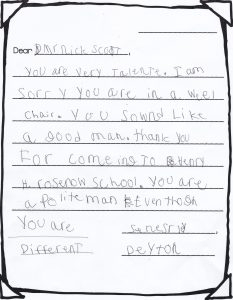 Dear Darnick Scott,
You are very talente. I am
Sorry you are in a weel
chair. You sownd Like
a good man. thank you
For comeing to Henry
H. rosenow School. You are
a Polite man Eventhogh
You are
Different
Deyton